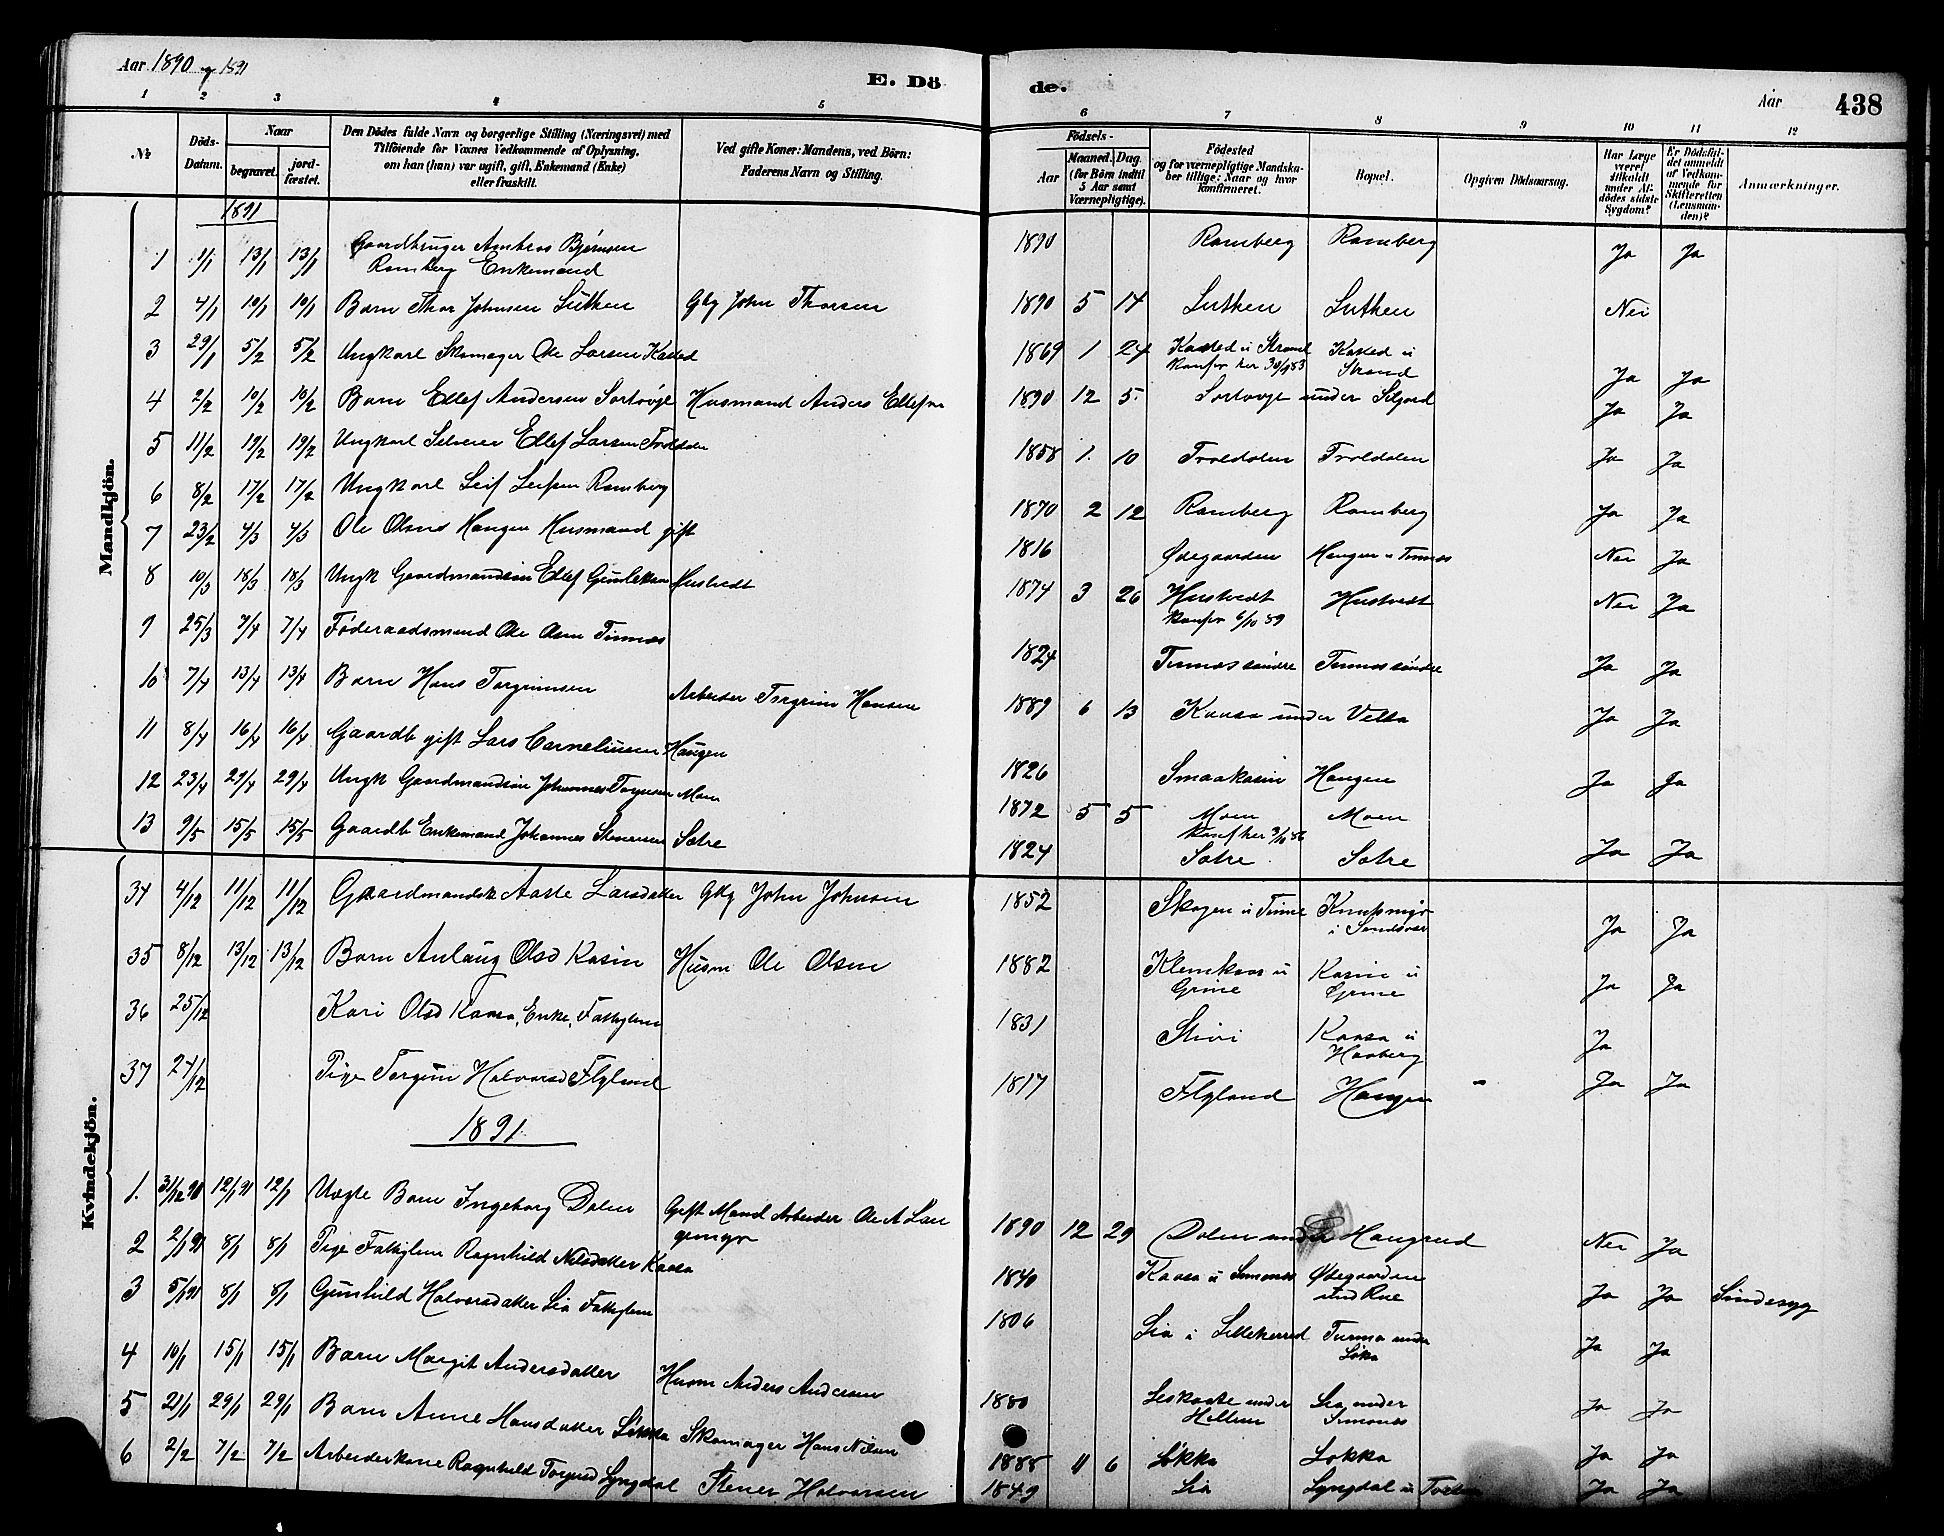 Aar 1890 og 1891
E. Dö
de.
Aar
438
1 2 3 4 5 6 7 8 9 10 11 12
№
Döds-Datum.
Naar
begravet.
jord-fæstet.
Den Dödes fulde Navn og borgerlige Stilling (Næringsvei) med
Tilföiende for Voxnes Vedkommende af Oplysning,
om han (hun) var ugift, gift, Enkemand (Enke)
eller fraskilt.
Ved gifte Koner: Mandens, ved Börn:
Faderens Navn og Stilling.
Födsels-
Aar
Maaned. Dag.
(for Börn indtil
5 Aar samt
Værnepligtige).
Födested
og for værnepligtige Mandska-
ber tillige: Naar og hvor
konfirmeret.
Bopæl.
Opgiven Dödsaarsag.
Har Læge
været
tilkaldt
under Af-
dödes sidste
Sygdom?
Er Dödsfal-
det anmeldt
af Vedkom-
mende for
Skifteretten
(Lensman-
den)?
Anmærkninger.
Mandkjön.
1891
1 1/1 13/1 13/1 Gaardbruger Anders Bjørnsen 1890 Ramberg Ramberg Ja Ja
Ramberg Enkemand
2 4/1 10/1 10/1 Barn Thor Johnsen Luthen Gbg John Thorsen 1890 5 14 Luthen Luthen Nei
3 29/1 5/2 5/2 Ungkarl Skomager Ole Larsen Kasted 1869 1 24 Kasted u Strand Kasted u
konfir her 30/9 83 Strand Ja Ja
4 2/2 10/2 10/2 Barn Ellef Andersen Husmand Anders Ellefsen 1890 12 5 under Ja Ja
5 11/2 19/2 19/2 Ungkarl Ellef Larsen Troldalen 1858 1. 10 Troldalen Troldalen Ja Ja
6 8/2 17/2 17/2 Ungkarl Leif Leifsen Ramberg 1870 2 12 Ramberg Ramberg Ja Ja
7 23/2 4/3 4/3 Ole Olsen Haugen Husmand gift 1816 Ødegaarden Haugen u Tinnes Nei Ja
8 10/3 18/3 18/3 Ungk Gaardmandsøn Ellef Gunleksen Hustvedt 1874 3 26 Hustvedt Hustvedt Nei Ja
konfir 6/10 89
9 25/3 7/4 7/4 Føderaadsmand Ole Olsen Tinnes 1824 Tinnes søndre Tinnes søndre Ja Ja
10 7/4 13/4 13/4 Barn Hans Torgrimsen Arbeider Torgrim Hansen 1889 6 13 Kaasa under Velta Ja Ja
11 8/4 16/4 16/4 Gaardb gift Lars Corneliusen Haugen 1826 Smaakasin Haugen Ja Ja
12 23/4 29/4 29/4 Ungk Gaardmandsøn Johannes Torgersen Moen 1872 5 5 Moen Moen
konf her 3/10 86
13 9/5 15/5 15/5 Gaardb Enkemand Johannes Stenersen Sætre 1824 Sætre Sætre Ja Ja
Kvindekjön.
34 4/12 11/12 11/12 Gaardmandsk Aaste Larsdatter Gbg John Johnsen 1852 Skogen u Tinne
i Sandsvær Ja Ja
35 8/12 13/12 13/12 Barn Anlaug Olsd Kasin Husm Ole Olsen 1882 Klemkaas u Kasin u
Grine Grine Ja Ja
36 25/12 Kari Olsd Kaasa, Enke, Fattiglem 1831 Stivi Kaasa u
Haaberg Ja
37 24/12 Pige Torgun Halvorsd Flyland 1817 Flyland Haugen Ja Ja
1891
1. 31/12 90 12/1 91 12/1 Uægte Barn Ingeborg Dalen Gift Mand Arbeider Ole A Lan
gemyr 1890 12 29 Dalen under Haugrud Nei Ja
2 2/1 91 8/1 8/1 Pige Fattiglem Ragnhild Nilsdatter Kaasa 1840 Kaasa u Simones Ødegaarden
und Rue Ja Ja Sindssyg
3 5/1 91 8/1 8/1 Gunhild Halvorsdatter Lia Fattiglem 1806 Lia i Lilleherred under
Løka Ja Ja
4 10/1 15/1 15/1 Barn Margit Andersdatter Husm Anders Andersen 1880 under Lia under
Simones Ja Ja
5 21/1 29/1 29/1 Barn Anne Hansdatter Løkka Skomager Hans Nilsen 1885 11 6 Løkka Løkka Ja Ja
6 2/2 7/2 7/2 Arbeiderkone Ragnhild Torgersd Lyngdal Stener Halvorsen 1849 Lia Lyngdal u Ja Ja